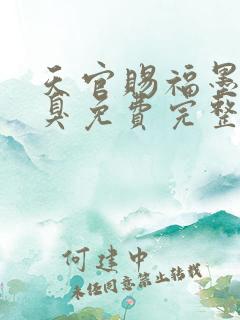 天官賜福墨
臭免費完整
何建中
未经同意禁止转载